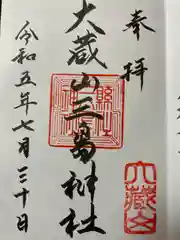 奉拝
大蔵山三島神社
令和五年七月三十日
大蔵山